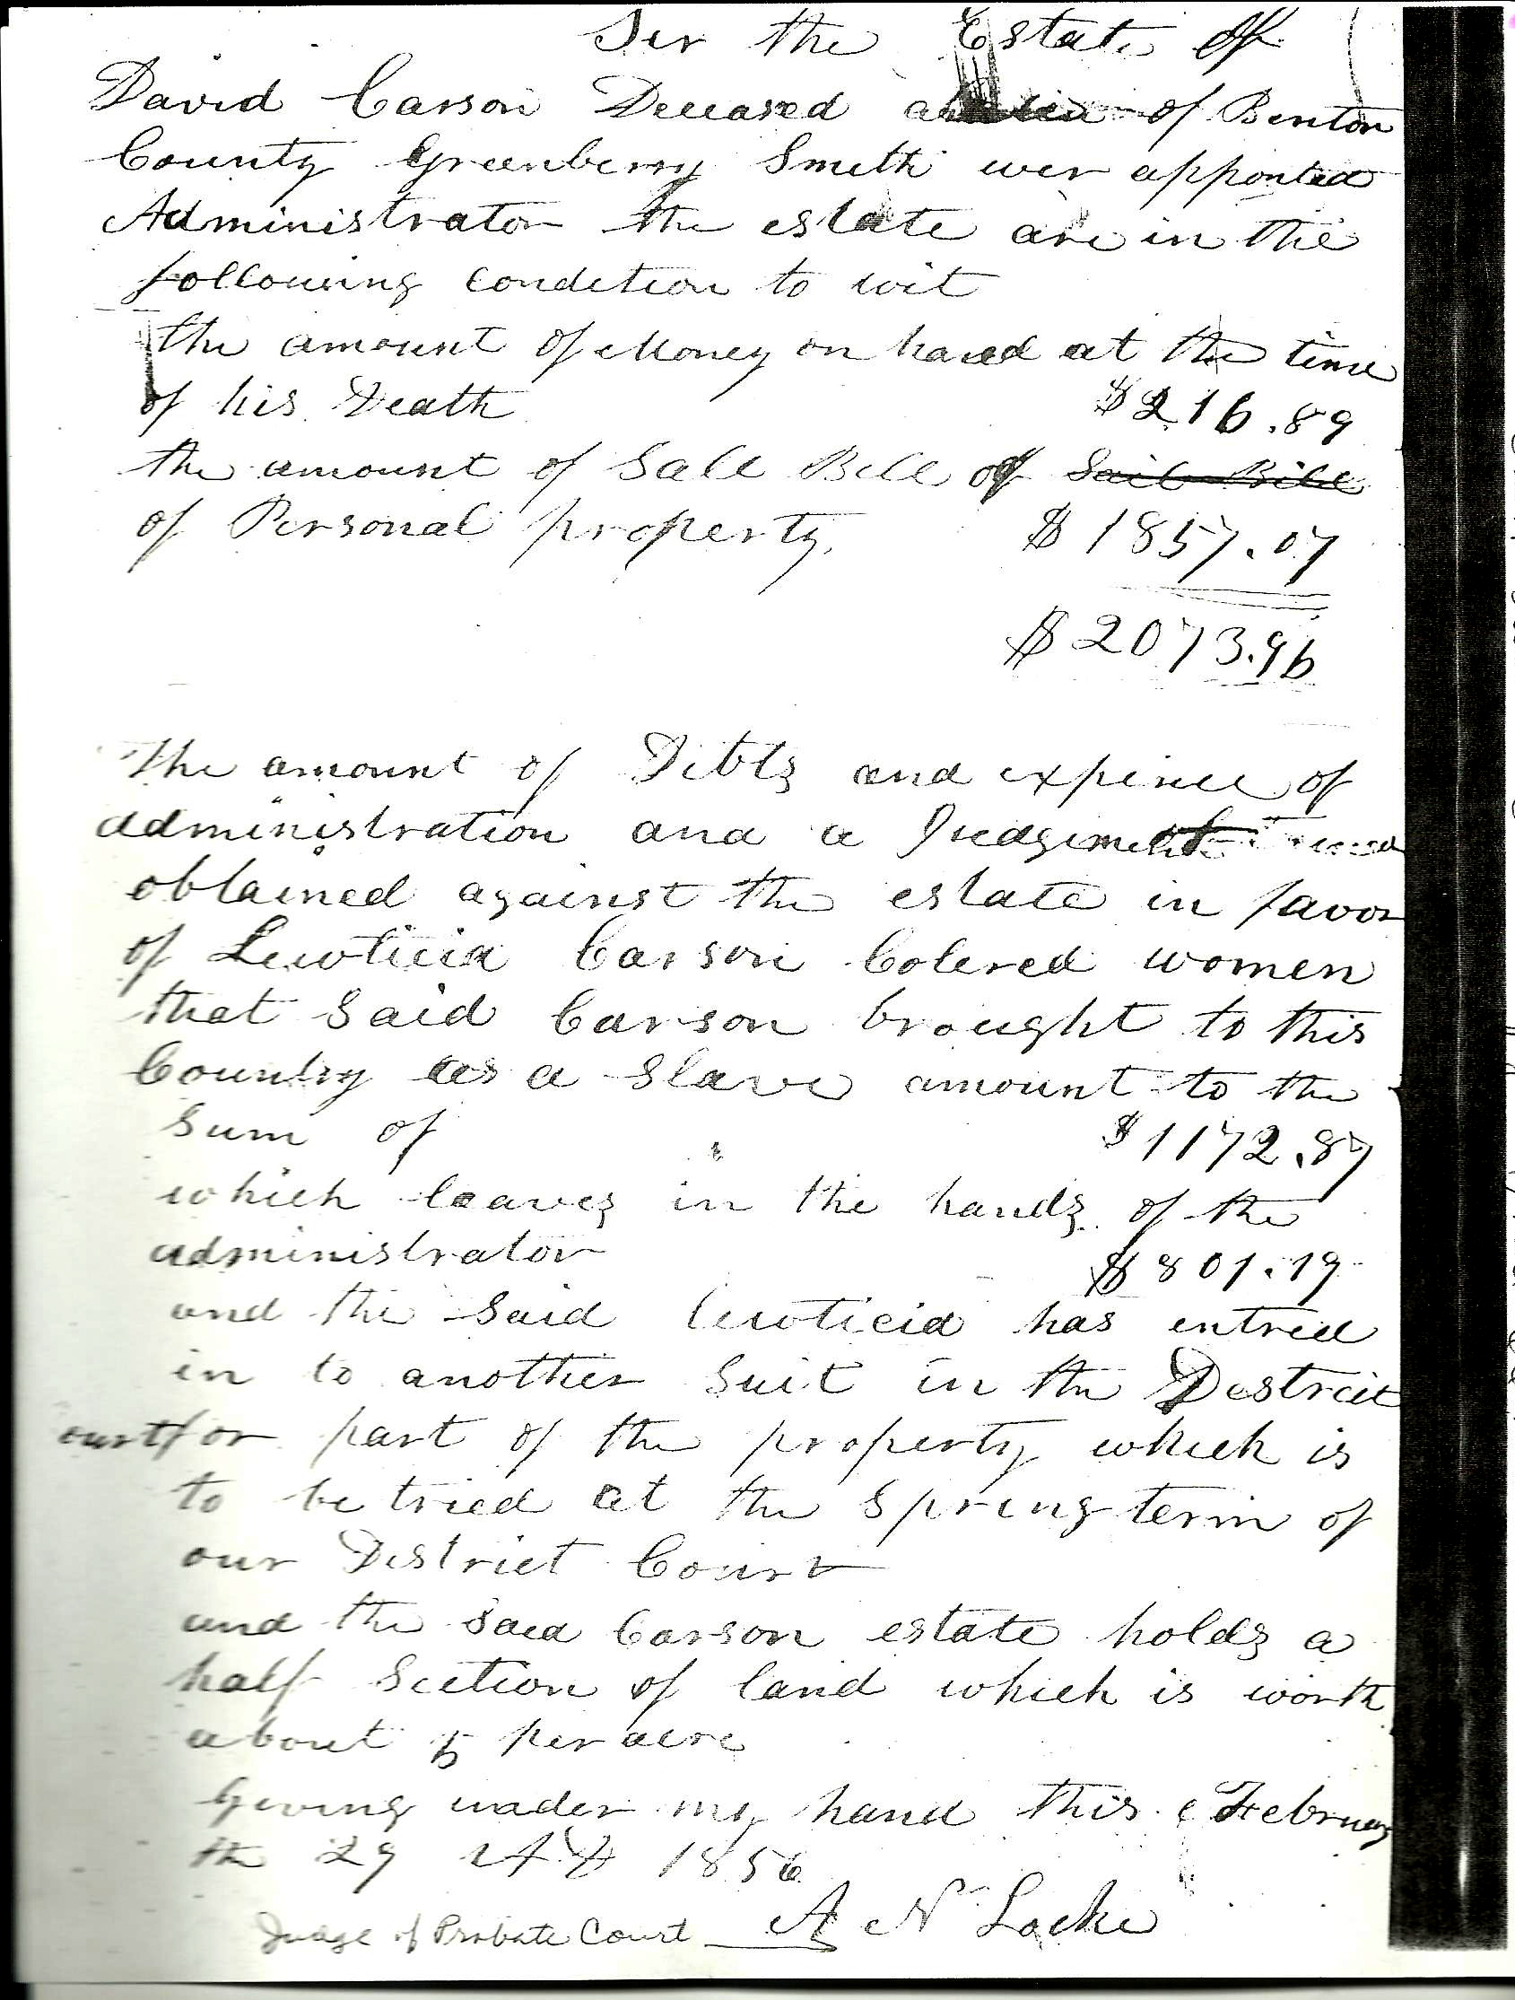 Sir the Estate of
David Carson Deceased of Benton
County Greenberry Smith wer apponted
Administrator the estate are in the
following condition to wit
the amount of Money on hand at the time
of his Death $216.89
the amount of Sall Bill of Sail Bill
of Personal property, $1857.07
$2073.96
The amount of Debts and expince of
administration and a Judgiment
obtained against the estate in favor
of Lewticia Carson Colered women
that Said Carson brought to this
Country as a Slave amount to the
Sum of $1172.87
which leaves in the hands of the
administrator $801.19
and the Said lewticia has entred
in to another Suit in the Destrict
ourt for part of the property which is
to be tried at the Spring term of
our District Court
and the Said Carson estate holds a
half Section of land which is worth
about 5 per acre
Giving under my hand this February
the 29 AD 1856
Judge of Probate Court A N Locke